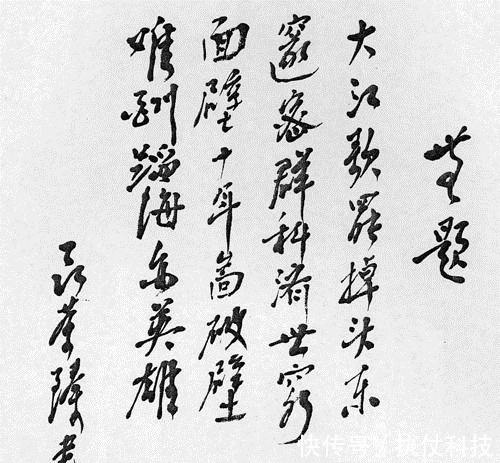 無題
大江歌罷掉头東
邃密群科濟世窮
面壁十年圖破壁
难酬蹈海亦英雄
快传号 / 执仗科技